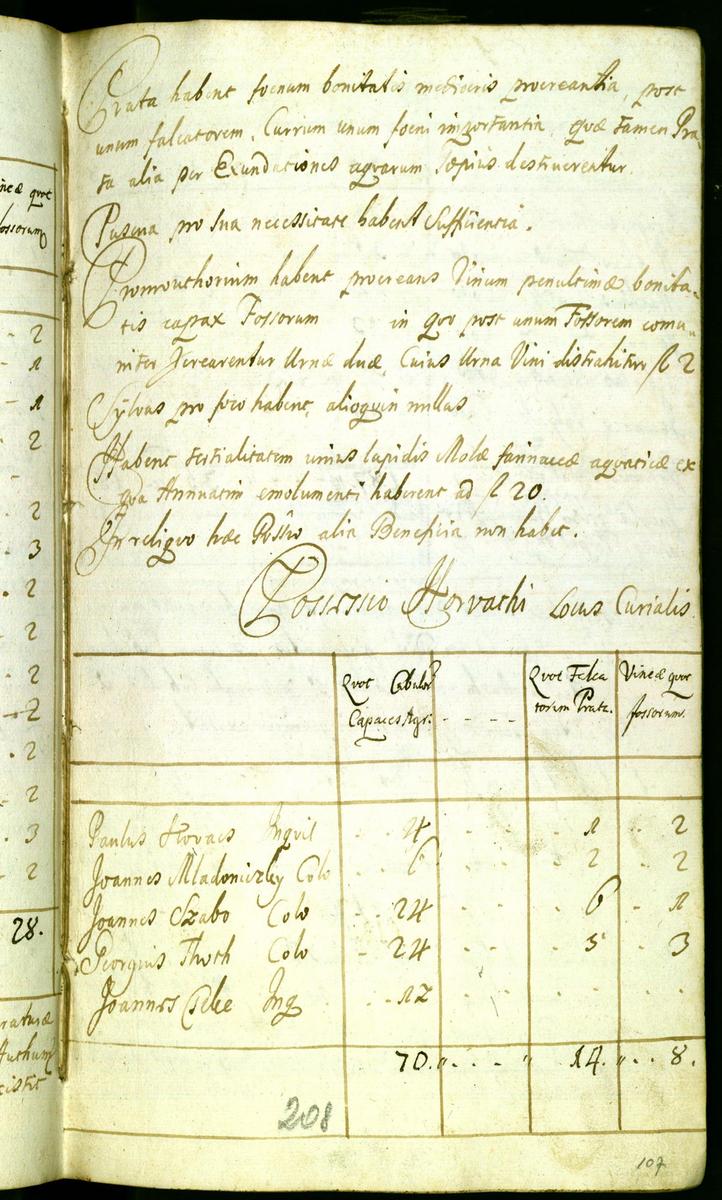 Prata habent foenum bonitatis mediocris procreantia, post
unum falcatorem, Currum unum foeni importantia, quæ tamen Pra-
ta alia per Exundationes aquarum sæpius destruerentur.
Pascua pro sua necessitate habent Sufficientia.
Promonthorium habent procreans Vinum penultimæ bonita-
tis capax Fossorum in quo post unum Fossorem comu-
niter Procrearentur Urnæ duæ, Cuius Urna Vini distrahitur fl 2
Sylvas pro foco habent, alioquin nullas
Habent tertialitatem unius lapidis Molæ farinaceæ aquaticæ ex
qua Annuatim emolumenti haberent ad fl 20.
In reliquo hæc Possio alia Beneficia non habet.
Possessio Horvathi Locus Curialis
ineæ quot
fossorum
Quot Cubulor
Capaces Agr. - - - -
Quot Falca
torum Prata.
Vineæ quot
fossorum.
2
1
1
2
2
3
2
2
2
2
2
2
3
2
28.
Paulus Kovacs Inquil - - 4 - - 1 - - 2
Joannes Mladoniczky Colo - - 6 - - 2 - - 2
Joannes Szabo Colo - - 24 - - 6 - 1
Georgius Thoth Colo - - 24 - - 5 - 3
Joannes Inq - - 12
70. " - - - " 14. " - - 8.
208
107